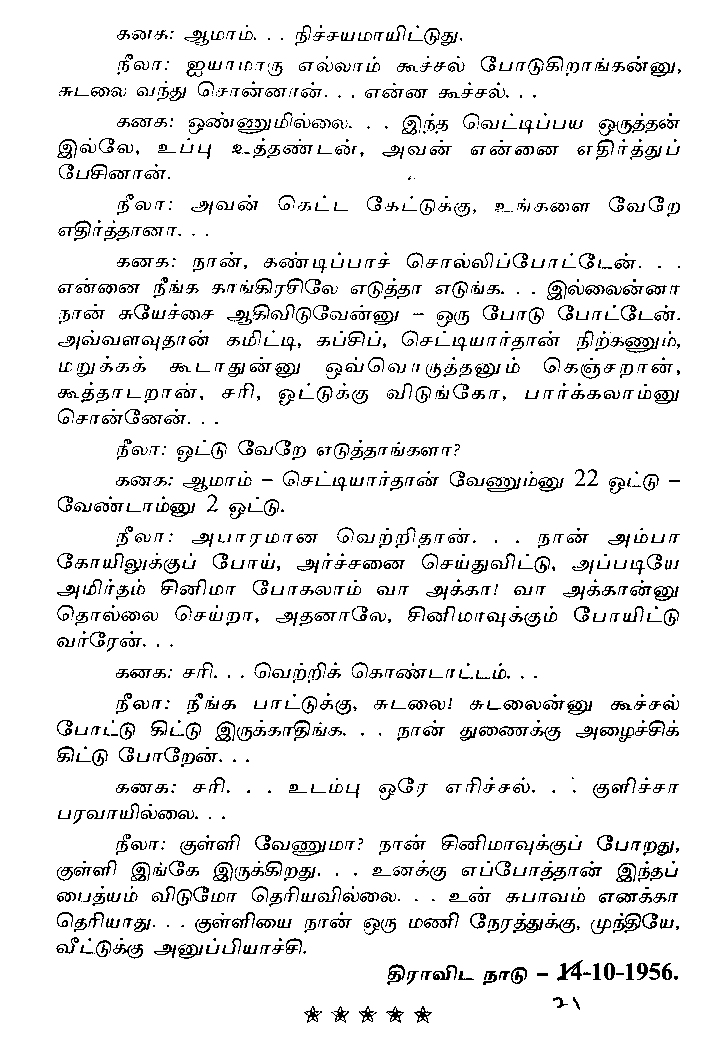 கனக: ஆமாம். . . நிச்சயமாயிட்டுது.
நீலா: ஐயாமாரு எல்லாம் கூச்சல் போடுகிறாங்கன்னு,
சுடலை வந்து சொன்னான். . . என்ன கூச்சல். . .
கனக: ஒண்ணுமில்லை. . . இந்த வெட்டிப்பய ஒருத்தன்
இல்லே, உப்பு உத்தண்டன், அவன் என்னை எதிர்த்துப்
பேசினான்.
நீலா: அவன் கெட்ட கேட்டுக்கு, உங்களை வேறே
எதிர்த்தானா. . .
கனக: நான், கண்டிப்பாச் சொல்லிப்போட்டேன். . .
என்னை நீங்க காங்கிரசிலே எடுத்தா எடுங்க. . . இல்லைன்னா
நான் சுயேச்சை ஆகிவிடுவேன்னு – ஒரு போடு போட்டேன்.
அவ்வளவுதான் கமிட்டி, கப்சிப், செட்டியார்தான் நிற்கணும்,
மறுக்கக் கூடாதுன்னு ஒவ்வொருத்தனும் கெஞ்சறான்,
கூத்தாடறான், சரி, ஓட்டுக்கு விடுங்கோ, பார்க்கலாம்னு
சொன்னேன். . .
நீலா: ஓட்டு வேறே எடுத்தாங்களா?
கனக: ஆமாம் – செட்டியார்தான் வேணும்னு 22 ஓட்டு –
வேண்டாம்னு 2 ஓட்டு.
நீலா: அபாரமான வெற்றிதான். . . நான் அம்பா
கோயிலுக்குப் போய், அர்ச்சனை செய்துவிட்டு, அப்படியே
அமிர்தம் சினிமா போகலாம் வா அக்கா! வா அக்கான்னு
தொல்லை செய்றா, அதனாலே, சினிமாவுக்கும் போயிட்டு
வர்ரேன். . .
கனக: சரி. . . வெற்றிக் கொண்டாட்டம். . .
நீலா: நீங்க பாட்டுக்கு, சுடலை! சுடலைன்னு கூச்சல்
போட்டு கிட்டு இருக்காதிங்க. . . நான் துணைக்கு அழைச்சிக்
கிட்டு போறேன். . .
கனக: சரி. . . உடம்பு ஒரே எரிச்சல். . . குளிச்சா
பரவாயில்லை. . .
நீலா: குள்ளி வேணுமா? நான் சினிமாவுக்குப் போறது,
குள்ளி இங்கே இருக்கிறது. . . உனக்கு எப்போத்தான் இந்தப்
பைத்யம் விடுமோ தெரியவில்லை. . . உன் சுபாவம் எனக்கா
தெரியாது. . . குள்ளியை நான் ஒரு மணி நேரத்துக்கு, முந்தியே,
வீட்டுக்கு அனுப்பியாச்சி.
திராவிட நாடு – 14-10-1956.
21